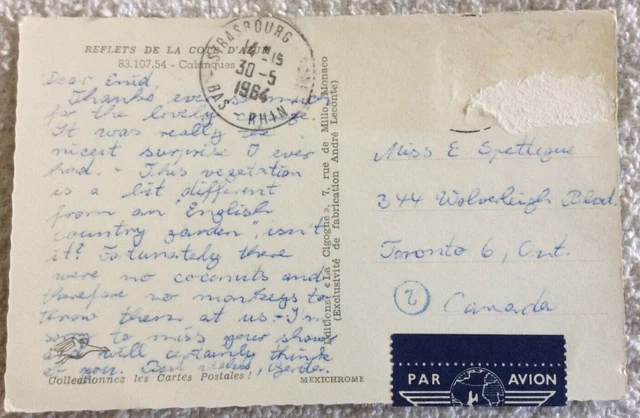 REFLETS DE LA COTE D'AZUR
83.107.54 - Calanques
STRASBOURG
14-15
30-5
1964
BAS-RHIN
Dear Enid,
Thanks ever so much
for the lovely
It was really the
nicest surprise I ever
had. - This vegetation
is a bit different
from an "English
country garden", isn't
it? Fortunately there
were no coconuts and
therefore no monkeys to
throw them at us - I'm
sorry to miss your show
and will certainly think
of you. Best wishes,
Collectionnez les Cartes Postales !
MEXICHROME
Editions «La Cigogne», 7, rue de Millo, Monaco
(Exclusivité de fabrication André Leconte)
Miss E Spettigue
344 Wolverleigh Blvd.
Toronto 6, Ont.
2
Canada
PAR AVION